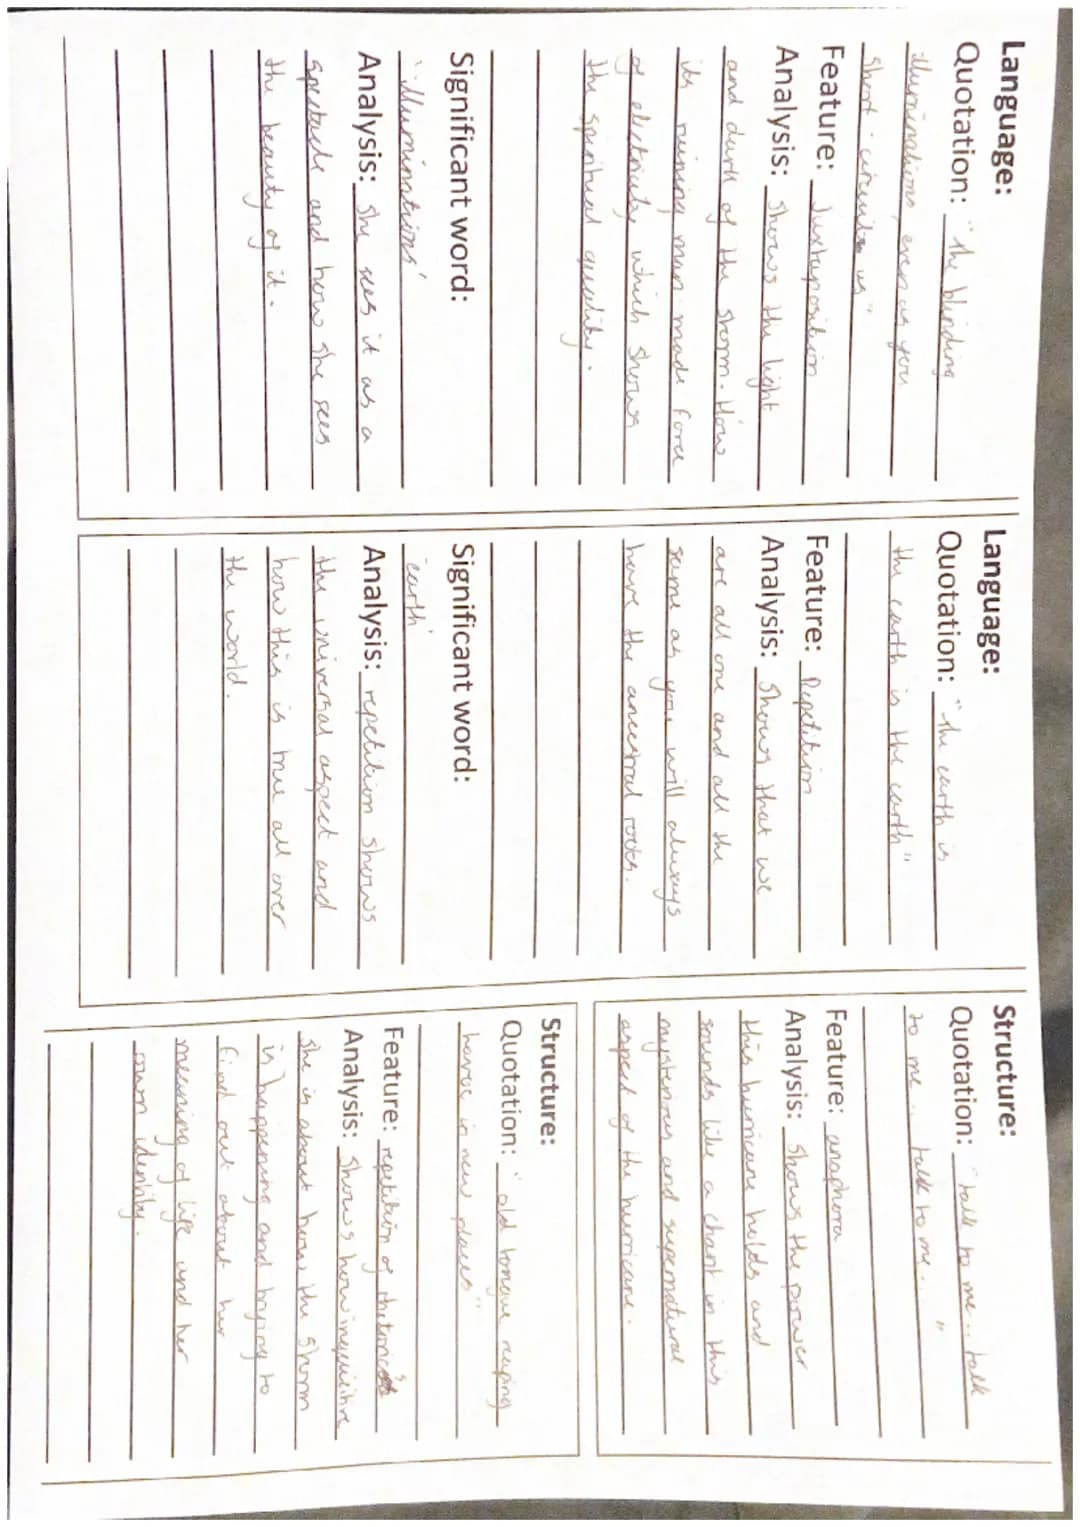 Language:
Quotation: "the blinding
illuminations, even as you
short-circuit us"
Feature: Juxtaposition
Analysis: shows the light
and dark of the storm. How
its ruining man-made force
of electricity which shows
the spiritual quality.
Significant word:
'illuminations'
Analysis: she sees it as a
spectacle and how she sees
the beauty of it.
Language:
Quotation: "the earth is
the earth is the earth"
Feature: Repetition
Analysis: Shows that we
are all one and all the
same as you will always
have the ancestral roots.
Significant word:
'earth'
Analysis: repetition shows
the universal aspect and
how this is true all over
the world.
Structure:
Quotation: "talk to me.. talk
to me.. talk to me.. "
Feature: anaphora
Analysis: Shows the power
this hurricane holds and
sounds like a chant in this
mysterious and supernatural
aspect of the hurricane.
Structure:
Quotation: "old tongue reaping
havoc in new places"
Feature: repetition of rhetoric
Analysis: Shows how inquisitive
she is about how the storm
is happening and trying to
find out about her
meaning of life and her
own identity.